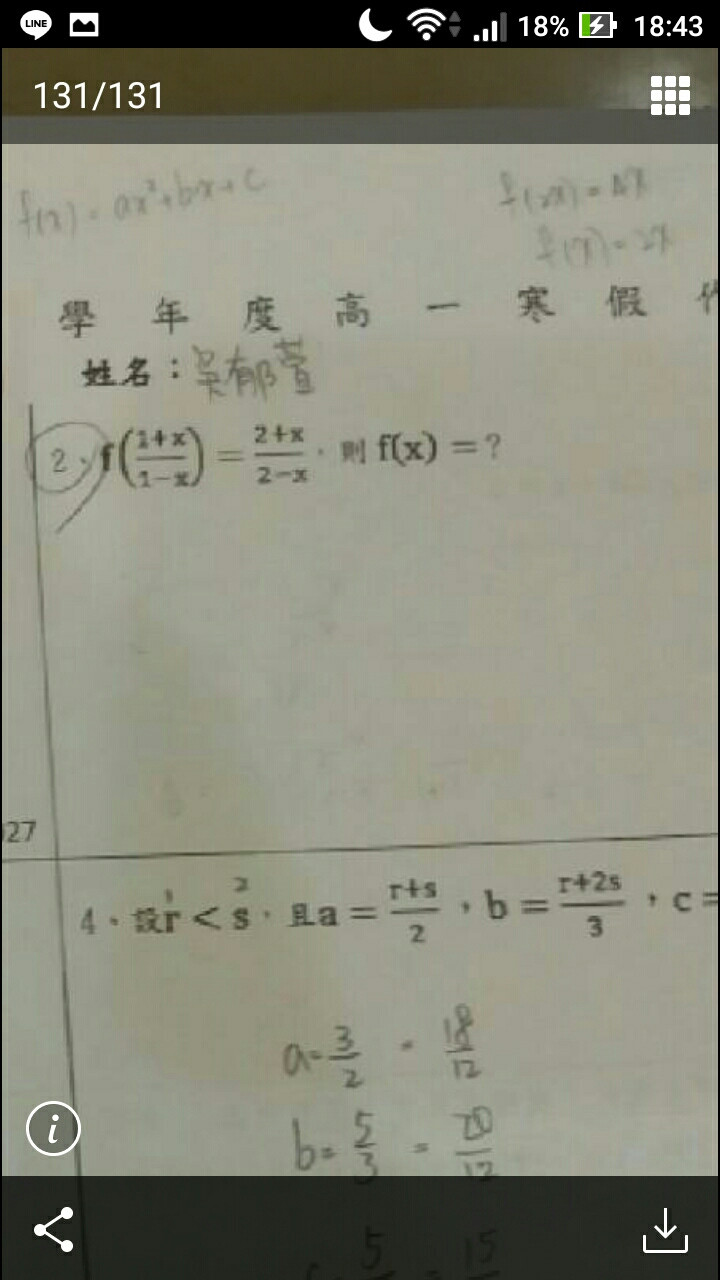 LINE 18% 18:43
131/131
f(x) = ax²+bx+c
f(2x) = 4x
f(x) = 2x
學年度高一寒假
姓名：吳郁萱
2、f((1+x)/(1−x)) = (2+x)/(2−x)，則 f(x) = ?
027
1 2
4、設r < s，且a = (r+s)/2，b = (r+2s)/3，c =
a = 3/2 = 18/12
b = 5/3 = 20/12
5 = 15
i